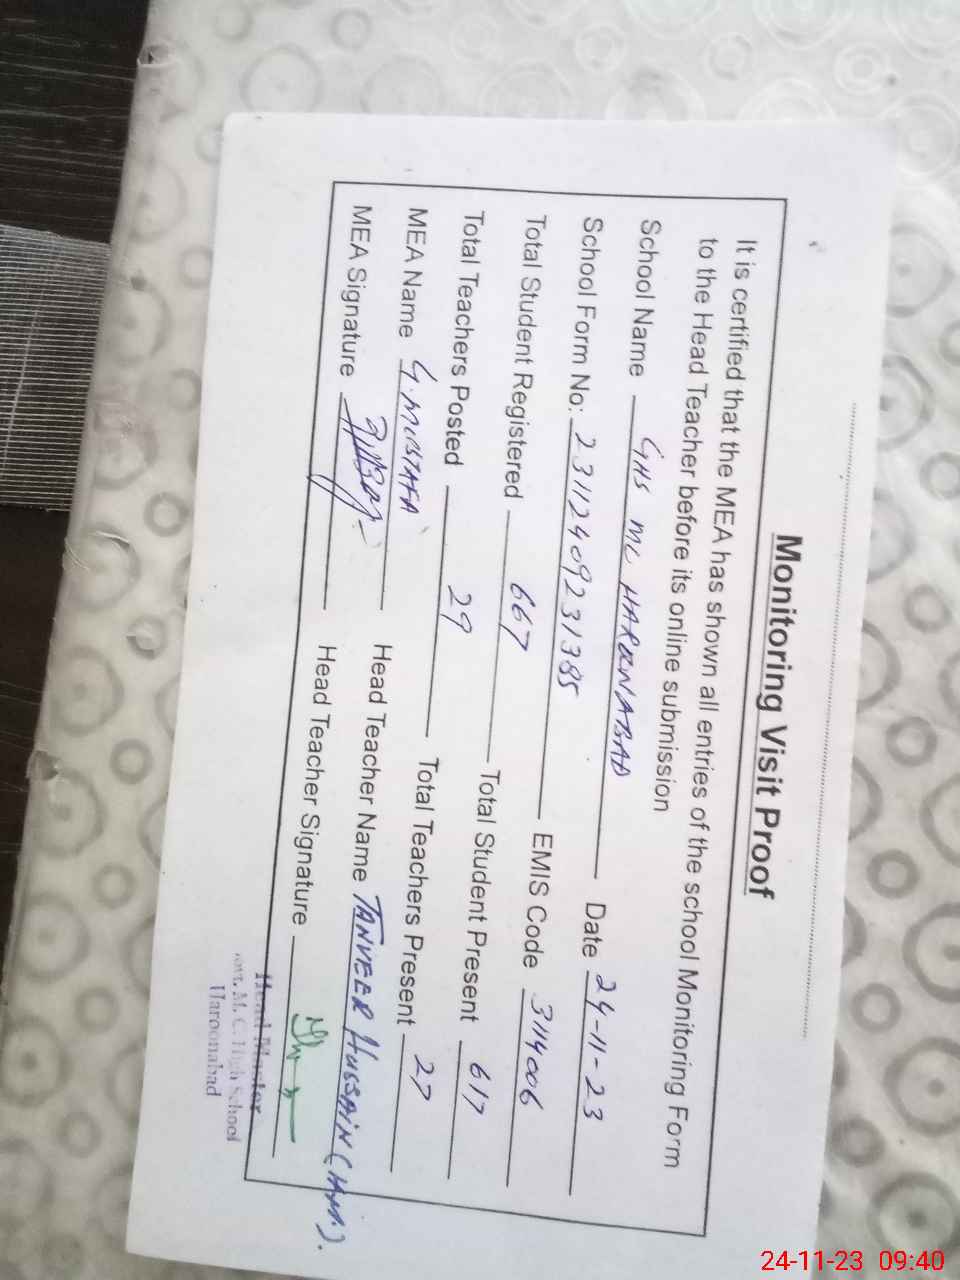 Monitoring Visit Proof
It is certified that the MEA has shown all entries of the school Monitoring Form
to the Head Teacher before its online submission
School Name GHS MC HAROONABAD Date 24-11-23
School Form No: 23112409231385 EMIS Code 3114006
Total Student Registered 667 Total Student Present 617
Total Teachers Posted 29 Total Teachers Present 27
MEA Name G. MUSTAFA Head Teacher Name TANVEER HUSSAIN (H.M).
MEA Signature Head Teacher Signature
Head Master
Govt. M. C. High School
Haroonabad
24-11-23 09:40